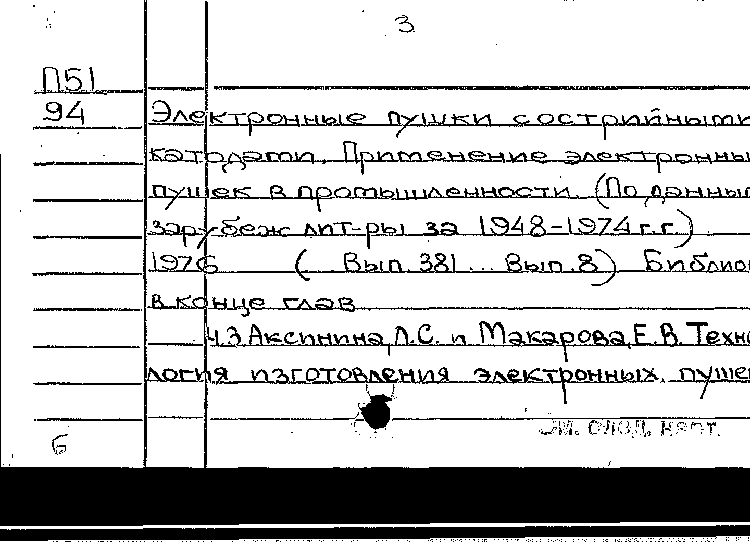 3
П51
94
Электронные пушки с острийными
катодами. Применение электронны
пушек в промышленности. (По данным
зарубеж лит-ры за 1948-1974 г.г.)
1976 (Вып. 381... Вып. 8) Библиог
в конце глав
Ч.3. Аксинина, Л.С. и Макарова, Е.В. Техно
логия изготовления электронных пушек
См. след. карт.
Б